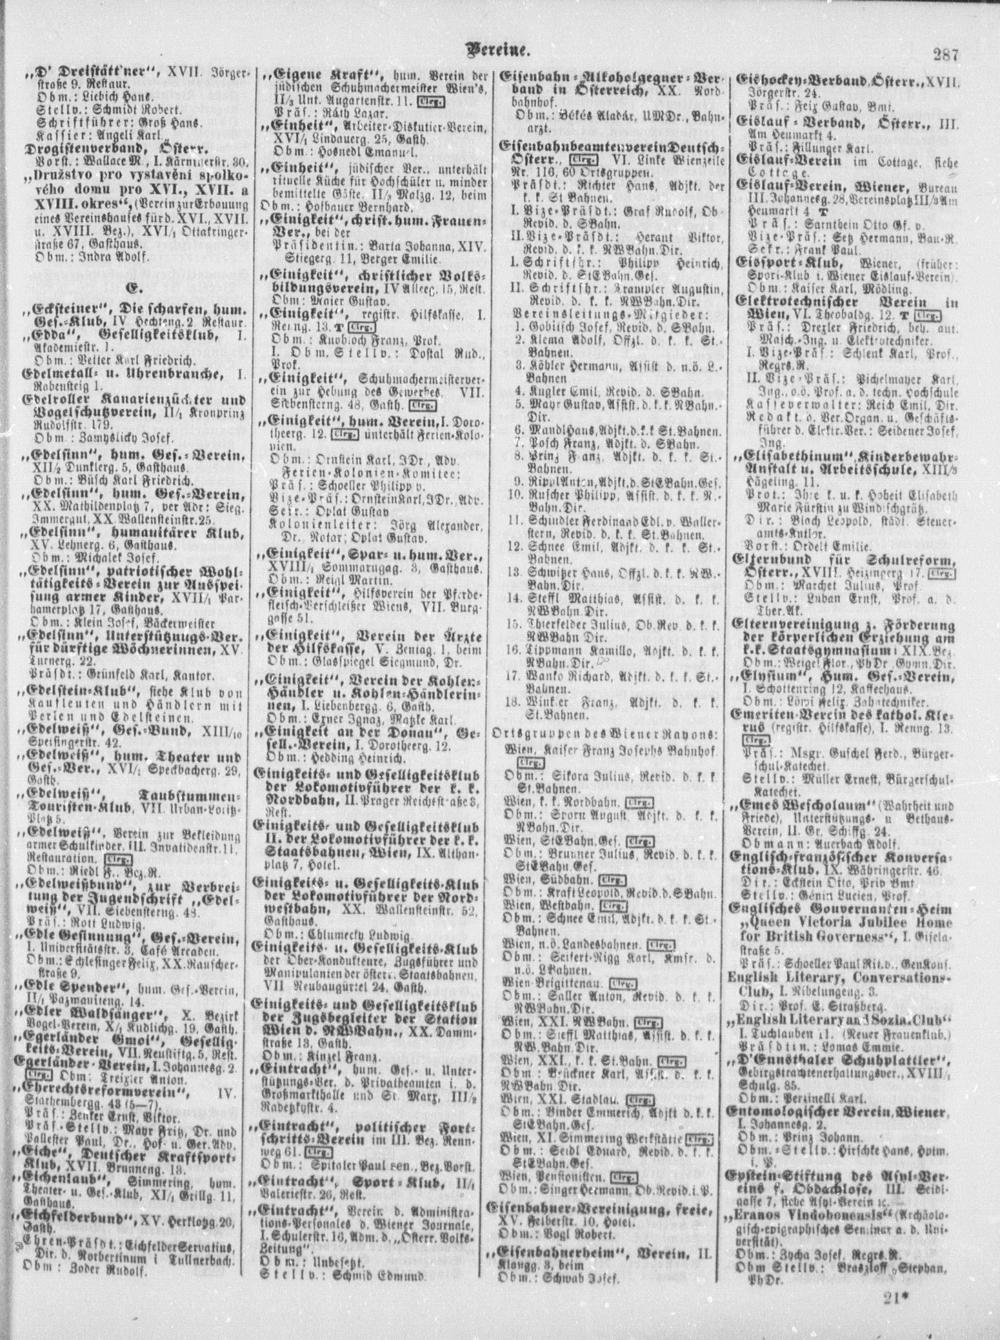 Vereine.
287
„D' Dreistätt'ner“, XVII. Jörger-
straße 9. Restaur.
Obm.: Liebich Hans.
Stellv.: Schmidt Robert.
Schriftführer: Groß Hans.
Kassier: Angeli Karl.
Drogistenverband, Österr.
Vorst.: Wallace M., I. Kärntnerstr. 30.
„Družstvo pro vystavění spolko-
vého domu pro XVI., XVII. a
XVIII. okres“, (Verein zur Erbouung
eines Vereinshauses für d. XVI., XVII.
u. XVIII. Bez.), XVI/1 Ottakringer-
straße 67, Gasthaus.
Obm.: Indra Adolf.
E.
„Ecksteiner“, Die scharfen, hum.
Ges.-Klub, IV Hechteng. 2 Restaur.
„Edda“, Geselligkeitsklub, I.
Akademiestr. 1.
Obm.: Vetter Karl Friedrich.
Edelmetall- u. Uhrenbrauche, I.
Rabensteig 1.
Edelroller Kanarienzüchter und
Vogelschutzverein, II/1 Kronprinz
Rudolfstr. 179.
Obm.: Zamyslicky Josef.
„Edelsinn“, hum. Ges.-Verein,
XII/2 Dunklerg. 5, Gasthaus.
Obm.: Büsch Karl Friedrich.
„Edelsinn“, hum. Ges.-Verein,
XX. Mathildenplatz 7, per Adr.: Sieg.
Immergut, XX. Wallensteinstr. 25.
„Edelsinn“, humanitärer Klub,
XV. Lehnerg. 6, Gasthaus.
Obm.: Michalek Josef.
„Edelsinn“, patriotischer Wohl-
tätigkeits-Verein zur Ausspei-
sung armer Kinder, XVII/1 Par-
hamerplatz 17, Gasthaus.
Obm.: Klein Josef, Bäckermeister
„Edelsinn“, Unterstützungs-Ver.
für dürftige Wöchnerinnen, XV.
Turnerg. 22.
Präsdt.: Grünfeld Karl, Kantor.
„Edelstein-Klub“, siehe Klub von
Kaufleuten und Händlern mit
Perlen und Edelsteinen.
„Edelweiß“, Ges.-Bund, XIII/10
Speisingerstr. 42.
„Edelweiß“, hum. Theater und
Ges.-Ver., XVI/1 Speckbacherg. 29,
Gasth.
„Edelweiß“, Taubstummen-
Touristen-Klub, VII. Urban-Loritz-
Platz 5.
„Edelweiß“, Verein zur Bekleidung
armer Schulkinder. III. Invalidenstr. 11,
Restauration. Clrg.
Obm.: Riedl F., Bez.R.
„Edelweißbund“, zur Verbrei-
tung der Jugendschrift „Edel-
weiß“, VII. Siebensterng. 48.
Präs.: Rott Ludwig.
„Edle Gesinnung“, Ges.-Verein,
I. Universitätsstr. 3, Café Arcaden.
Obm.: Schlesinger Felix, XX. Rauscher-
straße 9.
„Edle Spender“, hum. Ges.-Verein,
II/1 Pazmaniteng. 14.
„Edler Waldsänger“, X. Bezirk
Vogel-Verein, X/1 Kudlichg. 19, Gasth.
„Egerländer Gmoi“, Gesellig-
keits-Verein, VII. Neustiftg. 5, Rest.
Egerländer-Verein, I. Johannesg. 2.
Clrg. Obm.: Treixler Anton.
„Eherechtsreformverein“, IV.
Starhembergg. 48 (5—7).
Präs.: Zenker Ernst, Viktor.
Präs.-Stellv.: Mayr Fritz, Dr. und
Pallester Paul, Dr., Hof- u. Ger.Adv.
„Eiche“, Deutscher Kraftsport-
Klub, XVII. Brunneng. 13.
„Eichenlaub“, Simmering, hum.
Theater- u. Ges.-Klub, XI/1 Grillg. 11,
Gasthaus.
„Eichfelderbund“, XV. Herklotzg. 20,
Gasth.
Ehren-Präsdt.: Eichfelder Servatius,
Dir. d. Norbertinum i Tullnerbach.
Obm.: Zoder Rudolf.
„Eigene Kraft“, hum. Verein der
jüdischen Schuhmachermeister Wien's,
II/3 Unt. Augartenstr. 11. Clrg.
Präs.: Räth Lazar.
„Einheit“, Arbeiter-Diskutier-Verein,
XVI/1 Lindauerg. 25, Gasth.
Obm.: Hosnedl Emanuel.
„Einheit“, jüdischer Ver., unterhält
rituelle Küche für Hochschüler u. minder
bemittelte Gäste. II/2 Malzg. 12, beim
Obm.: Hofbauer Bernhard.
„Einigkeit“, christ. hum. Frauen-
Ver., bei der
Präsidentin: Barta Johanna, XIV.
Stiegerg. 11, Berger Emilie.
„Einigkeit“, christlicher Volks-
bildungsverein, IV Alleeg. 15, Rest.
Obm.: Maier Gustav.
„Einigkeit“, registr. Hilfskasse, I.
Renng. 13. T Clrg.
Obm.: Knobloch Franz, Prok.
I. Obm. Stellv.: Dostal Rud.,
Prok.
„Einigkeit“, Schuhmachermeisterver-
ein zur Hebung des Gewerbes, VII.
Siebensterng. 48, Gasth. Clrg.
„Einigkeit“, hum. Verein, I. Doro-
theerg. 12. Clrg. unterhält Ferien-Kolo-
nien.
Obm.: Ornstein Karl, JDr., Adv.
Ferien-Kolonien-Komitee:
Präs.: Schoeller Philipp v.
Vize-Präs.: Ornstein Karl, JDr., Adv.
Seir.: Oplat Gustav
Kolonienleiter: Jörg Alexander,
Dr., Notar; Oplat Gustav.
„Einigkeit“, Spar- u. hum. Ver.,
XVIII/1 Sommarugag. 3, Gasthaus.
Obm.: Reitzl Martin.
„Einigkeit“, Hilfsverein der Pferde-
fleisch-Verschleißer Wiens, VII. Burg-
gasse 51.
„Einigkeit“, Verein der Ärzte
der Hilfskasse, V. Zentag. 1, beim
Obm.: Glasspiegel Siegmund, Dr.
„Einigkeit“, Verein der Kohlen-
Händler u. Kohlen-Händlerin-
nen, I. Liebenbergg. 6, Gasth.
Obm.: Exner Ignaz, Matzle Karl.
„Einigkeit an der Donau“, Ge-
sell.-Verein, I. Dorotheerg. 12.
Obm.: Hedding Heinrich.
Einigkeits- und Geselligkeitsklub
der Lokomotivführer der k. k.
Nordbahn, II. Prager Reichsstraße 3,
Rest.
Einigkeits- und Geselligkeitsklub
II. der Lokomotivführer der k. k.
Staatsbahnen, Wien, IX. Althan-
platz 7, Hotel.
Einigkeits- u. Geselligkeits-Klub
der Lokomotivführer der Nord-
westbahn, XX. Wallensteinstr. 52,
Gasthaus.
Obm.: Chlumecky Ludwig.
Einigkeits- u. Geselligkeits-Klub
der Ober-Kondukteure, Zugsführer und
Manipulanten der österr. Staatsbahnen,
VII Neubaugürtel 24, Gasth.
Einigkeits- und Geselligkeitsklub
der Zugsbegleiter der Station
Wien d. NWBahn., XX. Damm-
straße 13, Gasth.
Obm.: Kinzel Franz.
„Eintracht“, hum. Ges.- u. Unter-
stützungs-Ver. d. Privatbeamten i. d.
Großmarkthalle und St. Marx, III/2
Radetzkystr. 4.
„Eintracht“, politischer Fort-
schritts-Verein im III. Bez. Renn-
weg 61. Clrg.
Obm.: Spitaler Paul sen., Bez.Vorst.
„Eintracht“, Sport-Klub, II/1
Valeriestr. 26, Rest.
„Eintracht“, Verein d. Administra-
tions-Personales d. Wiener Journale,
I. Schulerstr. 16, Adm. d. „Österr. Volks-
Zeitung“.
Obm.: Unbesetzt.
Stellv.: Schmid Edmund.
Eisenbahn-Alkoholgegner-Ver-
band in Österreich, XX. Nord-
bahnhof.
Obm.: Békés Aladár, UMDr., Bahn-
arzt.
Eisenbahnbeamtenverein Deutsch-
Österr., Clrg. VI. Linke Wienzeile
Nr. 116, 60 Ortsgruppen.
Präsdt.: Richter Hans, Adjkt. der
k. k. St Bahnen.
I. Vize-Präsdt.: Graf Rudolf, Ob.-
Revid. d. S Bahn.
II. Vize-Präsdt.: Herant Viktor,
Revid. d. k. k. NWBahn.Dir.
I. Schriftfhr.: Philipp Heinrich,
Revid. d. StEBahn.Ges.
II. Schriftfhr.: Krampler Augustin,
Revid. d. k. k. NWBahn.Dir.
Vereinsleitungs-Mitglieder:
1. Gobitsch Josef, Revid. d. S Bahn.
2. Klema Adolf, Offzl. d. k. k. St.-
Bahnen.
3. Köhler Hermann, Assist d. n.ö. L.-
Bahnen
4. Kugler Emil, Revid. d. SBahn.
5. Mayr Gustav, Assist. d. k. k. NBahn.-
Dir.
6. Mandl Hans, Adjkt. d. k.k St.Bahnen.
7. Posch Franz, Adjkt. d. SBahn.
8. Prinz Franz, Adjkt. d. k. k. St.-
Bahnen.
9. Ripl Anton, Adjkt. d. StEBahn.Ges.
10. Ruscher Philipp, Assist. d. k. k. N.-
Bahn.Dir.
11. Schindler Ferdinand Edl. v. Waller-
stern, Revid. d. k. k. St.Bahnen.
12. Schnee Emil, Adjkt. d. k. k. St.-
Bahnen.
13. Schwitzer Hans, Offzl. d. k. k. NW.-
Bahn.Dir.
14. Steffl Matthias, Assist. d. k. k.
NWBahn.Dir.
15. Thierfelder Julius, Ob.Rev. d. k. k.
NWBahn Dir.
16. Tippmann Kamillo, Adjkt. d. k. k.
NBahn.Dir.
17. Wanko Richard, Adjkt. d. k. k. St.-
Bahnen.
18. Winkler Franz, Adjkt. d. k. k.
St.Bahnen.
Ortsgruppen des Wiener Rayons:
Wien, Kaiser Franz Josephs Bahnhof
Clrg.
Obm.: Sikora Julius, Revid. d. k. k.
St.Bahnen.
Wien, k. k. Nordbahn. Clrg.
Obm.: Sporn August, Adjkt. d. k. k.
NBahn.Dir.
Wien, StEBahn.Ges. Clrg.
Obm.: Brunner Julius, Revid. d. k. k.
StEBahn.Ges.
Wien, Südbahn. Clrg.
Obm.: Kraft Leopold, Revid. d. S Bahn.
Wien, Westbahn. Clrg.
Obm.: Schnee Emil, Adjkt. d. k. k. St.-
Bahnen.
Wien, n.ö. Landesbahnen. Clrg.
Obm.: Seifert-Nigg Karl, Kmsr. d.
n.ö. LBahnen.
Wien-Brigittenau. Clrg.
Obm.: Saller Anton, Revid. d. k. k.
NWBahn.Dir.
Wien, XXI. NWBahn. Clrg.
Obm.: Steffl Matthias, Adjkt. d. k. k.
NW.Bahn.Dir.
Wien, XXI., k. k. St.Bahn. Clrg.
Obm.: Brückner Karl, Assist. d. k. k.
NWBahn Dir.
Wien, XXI. Stadlau. Clrg.
Obm.: Binder Emmerich, Adjkt d. k. k.
StEBahn.Ges.
Wien, XI. Simmering Werkstätte Clrg.
Obm.: Seidl Eduard, Revid. d. k. k.
StEBahn.Ges.
Wien, Pensionisten. Clrg.
Obm.: Singer Hermann, Ob.Revid. i. P.
Eisenbahner-Vereinigung, freie,
XV. Felberstr. 10, Hotel.
Obm.: Vogl Robert.
„Eisenbahnerheim“, Verein, II.
Klangg. 3, beim
Obm.: Schwab Josef.
Eishockey-Verband, Österr., XVII.
Jörgerstr. 24.
Präs.: Felix Gustav, Bmt.
Eislauf-Verband, Österr., III.
Am Heumarkt 4.
Präs.: Fillunger Karl.
Eislauf-Verein im Cottage, siehe
Cottage.
Eislauf-Verein, Wiener, Bureau
III. Johannesg. 28, Vereinsplatz III/3 Am
Heumarkt 4 T
Präs.: Sarnthein Otto Gf. v.
Vize-Präs.: Setz Hermann, Bau-R.
Sekr.: Frank Paul.
Eissport-Klub, Wiener, (früher:
Sport-Klub i. Wiener Eislauf-Verein).
Obm.: Kaiser Karl, Mödling.
Elektrotechnischer Verein in
Wien, VI. Theobaldg. 12. T Clrg.
Präs.: Drexler Friedrich, beh. aut.
Masch.-Ing. u. Elektrotechniker.
I. Vize-Präs.: Schlenk Karl, Prof.,
Regrs.R.
II. Vize-Präs.: Pichelmayer Karl,
Ing., o.ö. Prof. a. d. techn. Hochschule
Kasseverwalter: Reich Emil, Dir.
Redakt. d. Ver.Organ. u. Geschäfts-
führer d. Elektr.Ver.: Seidener Josef,
Ing.
„Elisabethinum“, Kinderbewahr-
Anstalt u. Arbeitsschule, XIII/3
Hägeling. 11.
Prot.: Ihre k. u. k. Hoheit Elisabeth
Marie Fürstin zu Windischgrätz.
Dir.: Bloch Leopold, städt. Steuer-
amts-Kntlor.
Vorst.: Ordelt Emilie.
Elternbund für Schulreform,
Österr., XVIII. Heizingerg 17. Clrg.
Obm.: Marchet Julius, Prof.
Stellv.: Luban Ernst, Prof. a. d.
Ther.Ak.
Elternvereinigung z. Förderung
der körperlichen Erziehung am
k.k. Staatsgymnasium i XIX.Bez.
Obm.: Weigel Flor., PhDr Gymn.Dir.
„Elysium“, Hum. Ges.-Verein,
I. Schottenring 12, Kaffeehaus.
Obm.: Löwi Felix, Zahntechniker.
Emeriten-Verein des kathol. Kle-
rus (registr. Hilfskasse), I. Renng. 13.
Clrg.
Präs.: Msgr. Guschel Ferd., Bürger-
schul-Katechet.
Stellv.: Müller Ernest, Bürgerschul-
Katechet.
„Emes Wescholaum“ (Wahrheit und
Friede), Unterstützungs- u. Bethaus-
Verein, II. Gr. Schiffg. 24.
Obmann: Auerbach Adolf.
Englisch-französischer Konversa-
tions-Klub, IX. Währingerstr. 46.
Dir.: Eckstein Otto, Priv Bmt.
Stellv.: Génin Lucien, Prof.
Englisches Gouvernanten-Heim
„Queen Victoria Jubilee Home
for British Governess“, I. Gisela-
straße 5.
Präs.: Schoeller Paul Rit.v., GenKons.
English Literary, Conversations-
Club, I. Nibelungeng. 3.
Dir.: Prof. E. Straßberg.
„English Literary and Social Club“
I. Tuchlauben 11. (Neuer Frauenklub.)
Präsdtin: Lomas Emmie.
„D'Ennsthaler Schuhplattler“,
Gebirgstrachtenerhaltungsver., XVIII/1
Schulg. 85.
Obm.: Perzinelli Karl.
Entomologischer Verein, Wiener,
I. Johannesg. 2.
Obm.: Prinz Johann.
Obm.-Stellv.: Hirschke Hans, Hptm.
i. P.
Epstein-Stiftung des Asyl-Ver-
eins f. Obdachlose, III. Seidl-
gasse 7, siehe Asyl-Verein 2c.
„Eranos Vindobonensis“ (Archäolo-
gisch-epigraphisches Seminar a. d. Uni-
versität).
Obm.: Zycha Josef, Regrs.R.
Obm Stellv.: Braszloff Stephan,
PhDr.
21*